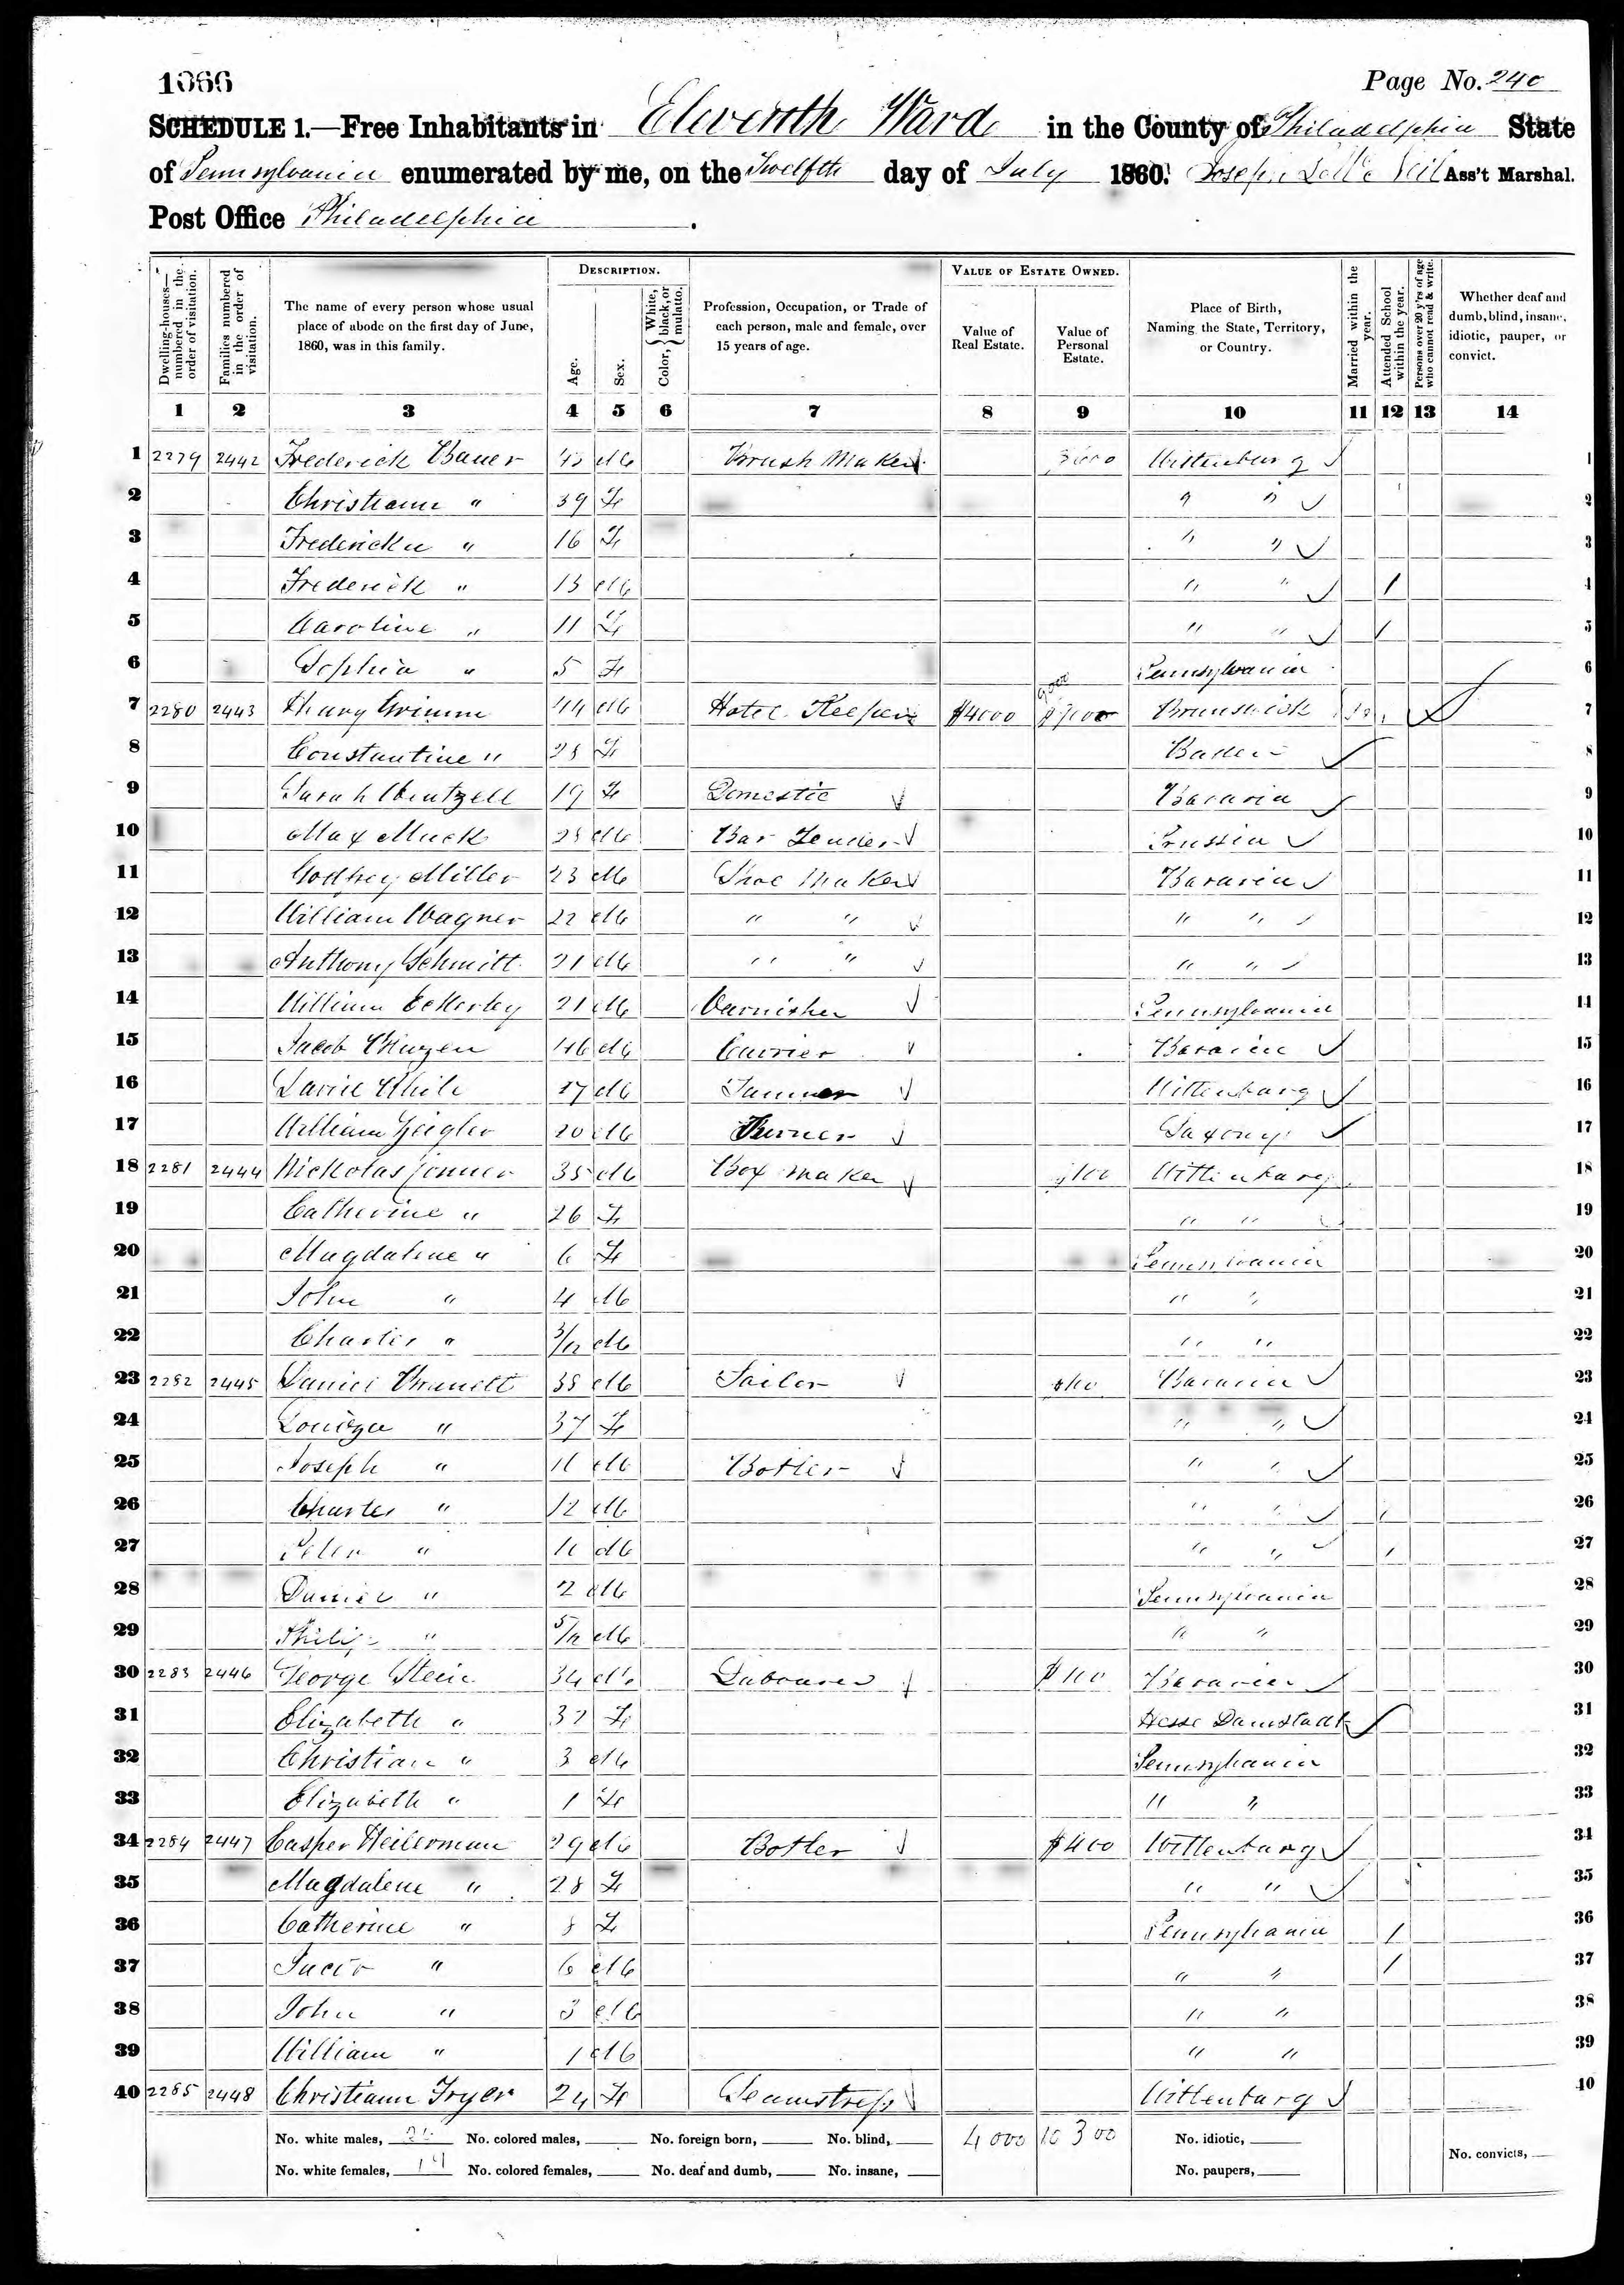 1066
Page No. 240
SCHEDULE 1.—Free Inhabitants in Eleventh Ward in the County of Philadelphia State
of Pennsylvania enumerated by me, on the Twelfth day of July 1860. Joseph Ass't Marshal.
Post Office Philadelphia.
Dwelling-houses—numbered in the order of visitation.
Families numbered in the order of visitation.
The name of every person whose usual place of abode on the first day of June, 1860, was in this family.
DESCRIPTION.
Age.
Sex.
Color, { White, black, or mulatto.
Profession, Occupation, or Trade of each person, male and female, over 15 years of age.
VALUE OF ESTATE OWNED.
Value of Real Estate.
Value of Personal Estate.
Place of Birth, Naming the State, Territory, or Country.
Married within the year.
Attended School within the year.
Persons over 20 y'rs of age who cannot read & write.
Whether deaf and dumb, blind, insane, idiotic, pauper, or convict.
1 2 3 4 5 6 7 8 9 10 11 12 13 14
1 2279 2442 Frederick Bauer M Brush Maker Wittenburg 1
2 Christiann " 39 F " " 2
3 Fredericka " 16 F " " 3
4 Frederick " 13 M " " / 4
5 Caroline " 11 F " " / 5
6 Sophia " 5 F Pennsylvania 6
7 2280 2443 Henry Grimm 44 M Hotel Keeper $4000 Brunswick 7
8 Constantine " 28 F Baden 8
9 Sarah Wentzell 19 F Domestic Bavaria 9
10 Max Muck 28 M Bar Tender Prussia 10
11 Godfrey Miller 23 M Shoe Maker Bavaria 11
12 William Wagner 22 M " " " " 12
13 Anthony Schmitt 21 M " " " " 13
14 William Eckerley 21 M Varnisher Pennsylvania 14
15 Jacob 46 M Currier Bavaria 15
16 M Tanner Wittenburg 16
17 William Zeigler 20 M Turner Saxony 17
18 2281 2444 Nickolas Jenner 35 M Box Maker $100 Wittenburg 18
19 Catherine " 26 F " " 19
20 Magdalene " 6 F Pennsylvania 20
21 John " 4 M " " 21
22 Charles " 3/12 M " " 22
23 2282 2445 Daniel 38 M Tailor Bavaria 23
24 Louiza " 37 F " " 24
25 Joseph " M Botler " " 25
26 Charles " 12 M " " / 26
27 Peter " M " " / 27
28 Daniel " 2 M Pennsylvania 28
29 Philip " 5/12 M " " 29
30 2283 2446 George Stein 34 M Labourer $100 Bavaria 30
31 Elizabeth " 32 F Hesse Damstadt 31
32 Christian " 3 M Pennsylvania 32
33 Elizabeth " 1 F " " 33
34 2284 2447 Casper Heilerman 29 M Botler $400 Wittenburg 34
35 Magdalene " 28 F " " 35
36 Catherine " 8 F Pennsylvania / 36
37 Jacob " 6 M " " / 37
38 John " 3 M " " 38
39 William " 1 M " " 39
40 2285 2448 Christiann Fryer 24 F Seamstress Wittenburg 40
No. white males, 26 No. colored males, No. foreign born, No. blind, 4000 10300 No. idiotic,
No. white females, 14 No. colored females, No. deaf and dumb, No. insane, No. paupers, No. convicts,